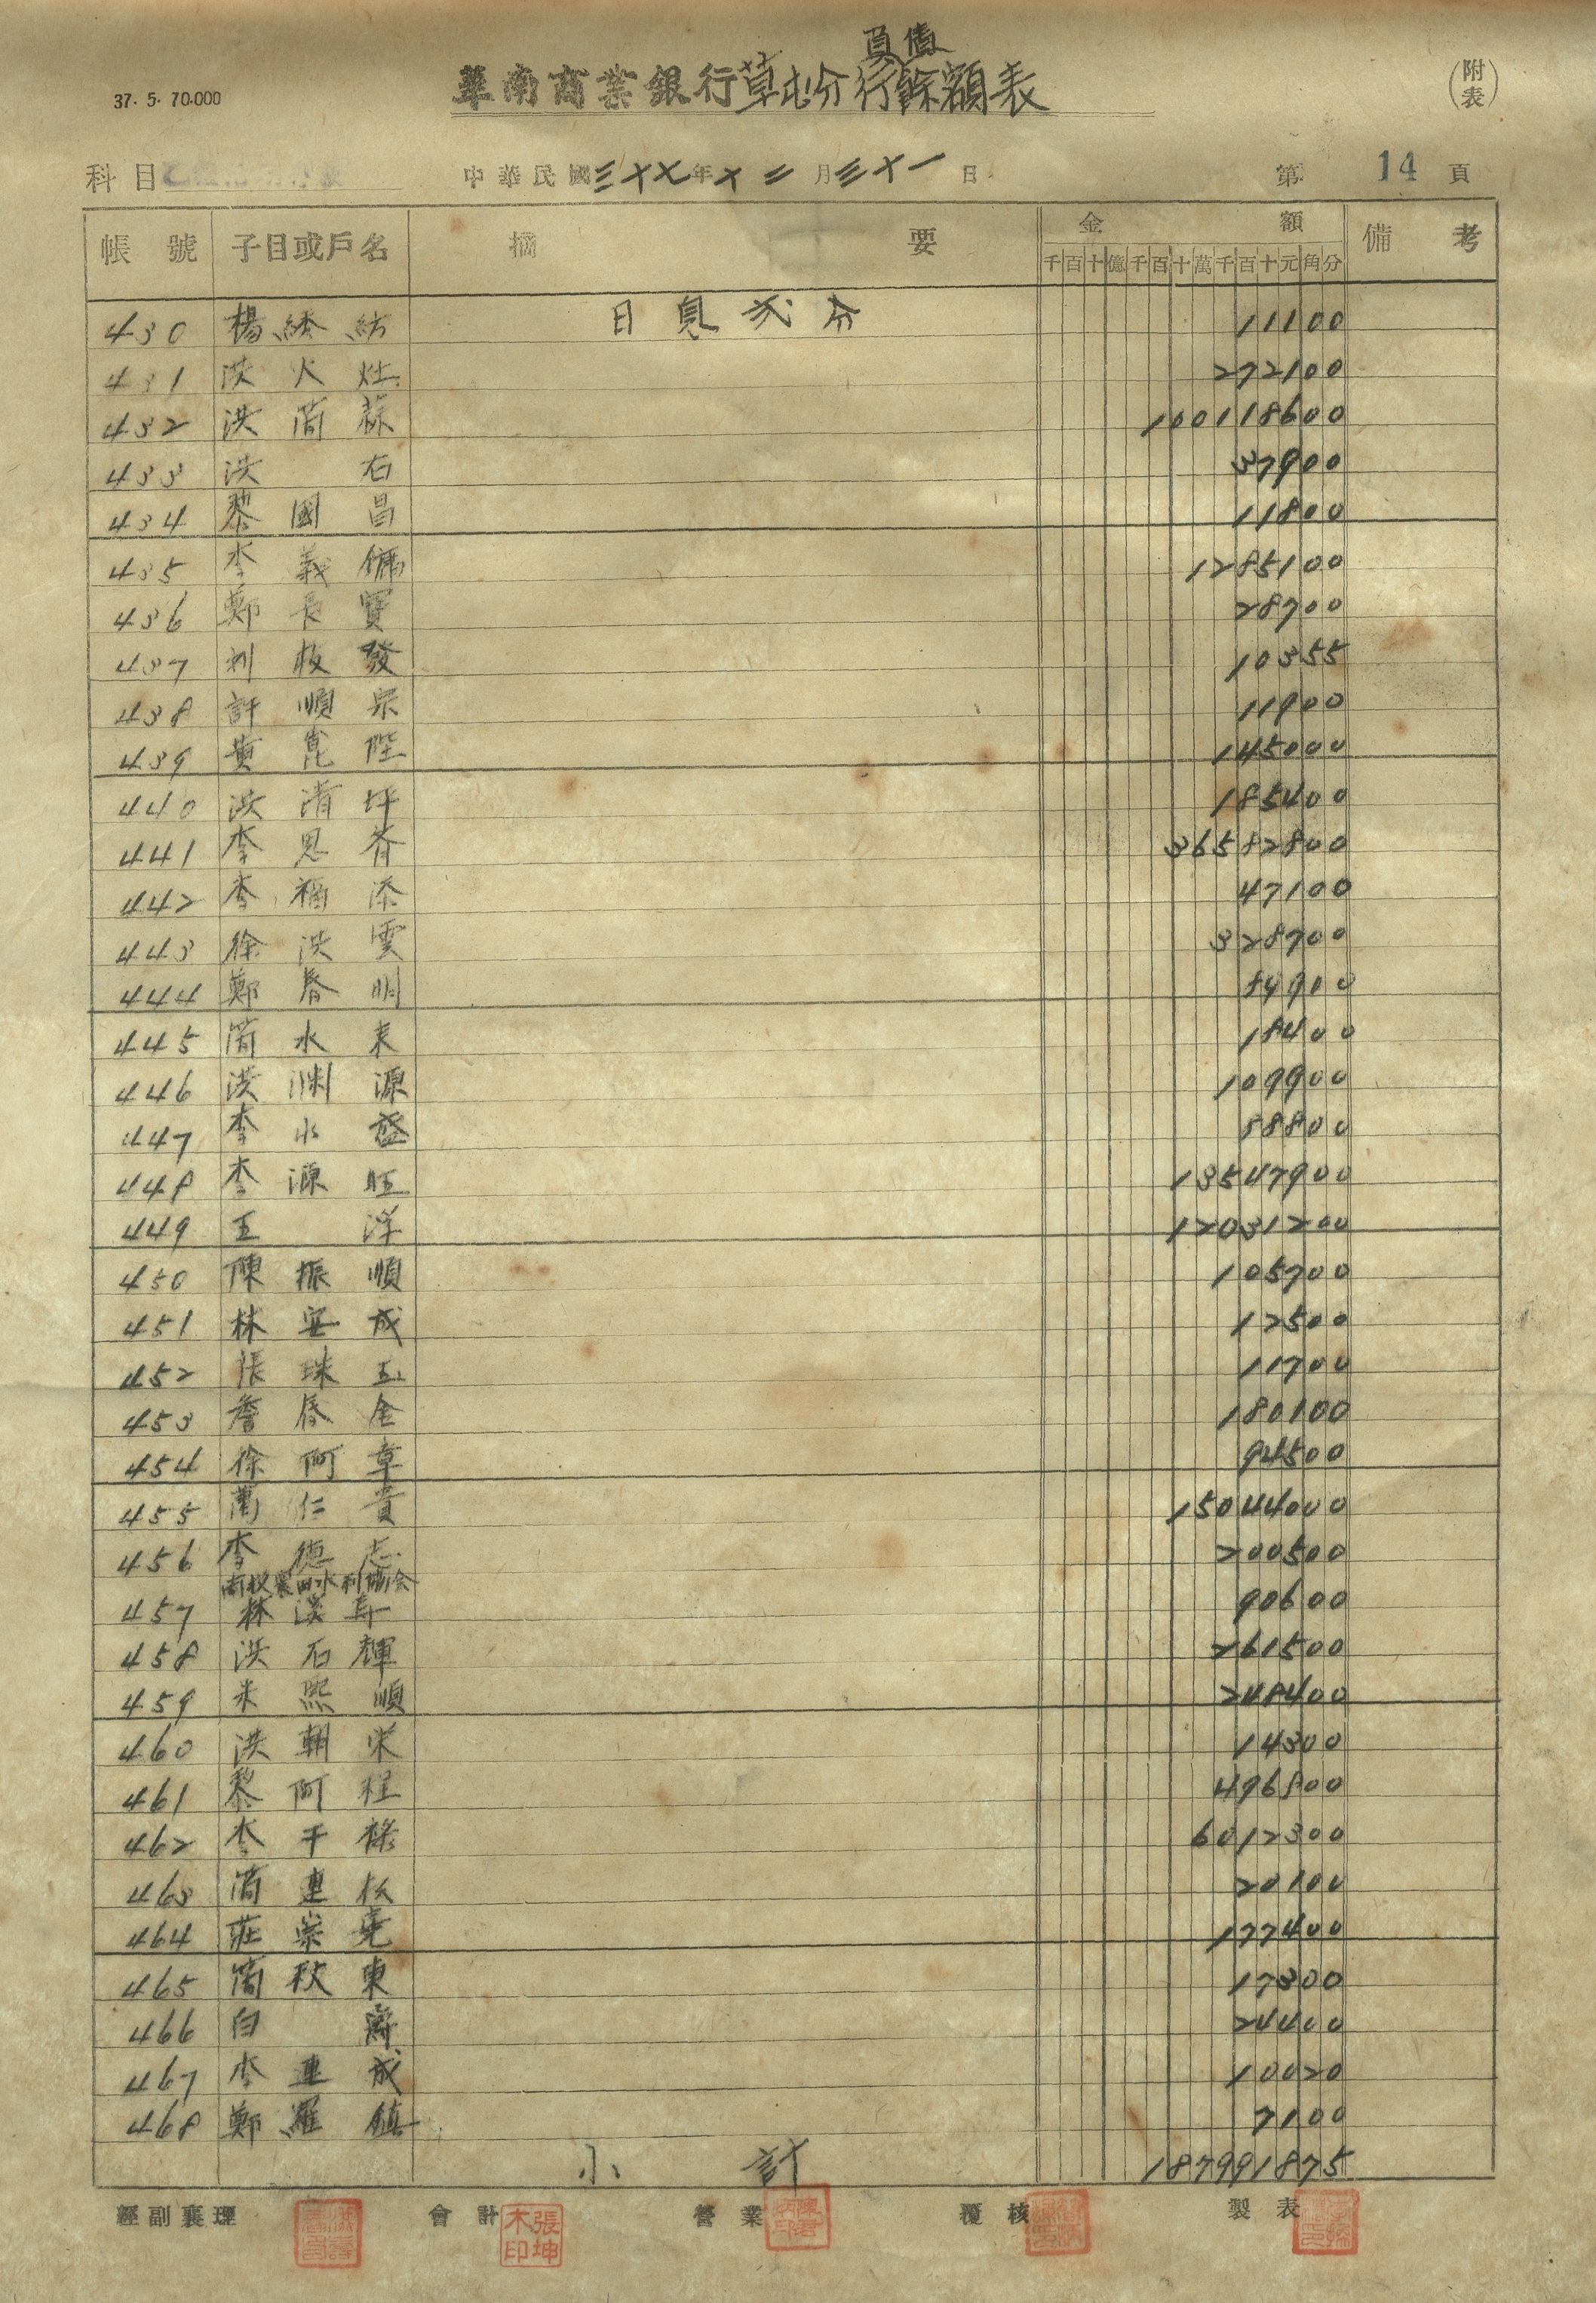 負債
華南商業銀行草屯分行餘額表
(附表)
37.5.70.000
科目 中華民國三十七年十二月三十一日 第14頁
帳號 子目或戶名 摘要 金額 備考
千百十億千百十萬千百十元角分
430 楊 日息弍分 11100
431 洪火灶 272100
432 洪簡蒜 100118600
433 洪石 37900
434 黎國昌 11800
435 李義 1285100
436 鄭長寶 28700
437 利枝發 10355
438 許順 11900
439 黃崑陛 145000
440 洪清坪 185400
441 李恩 36582800
442 李福添 47100
443 徐洪雲 328700
444 鄭春明 84900
445 簡水來 18400
446 洪淵源 109900
447 李水盛 58800
448 李源旺 13547900
449 王洋 12031200
450 陳振順 105700
451 林安成 12500
452 張珠玉 11700
453 詹春金 180100
454 徐阿章 94500
455 萬仁貴 15044000
456 李德志 200500
南投農田水利協會
457 林漢 90600
458 洪石輝 261500
459 米熙順 248400
460 洪朝榮 14300
461 黎阿程 496800
462 李干 6012300
463 簡連松 20100
464 莊崇堯 177400
465 簡秋東 17300
466 白 24400
467 李連成 10020
468 鄭羅鎮 7100
小計 187991875
經副襄理 會計 張坤木印 營業 覆核 製表